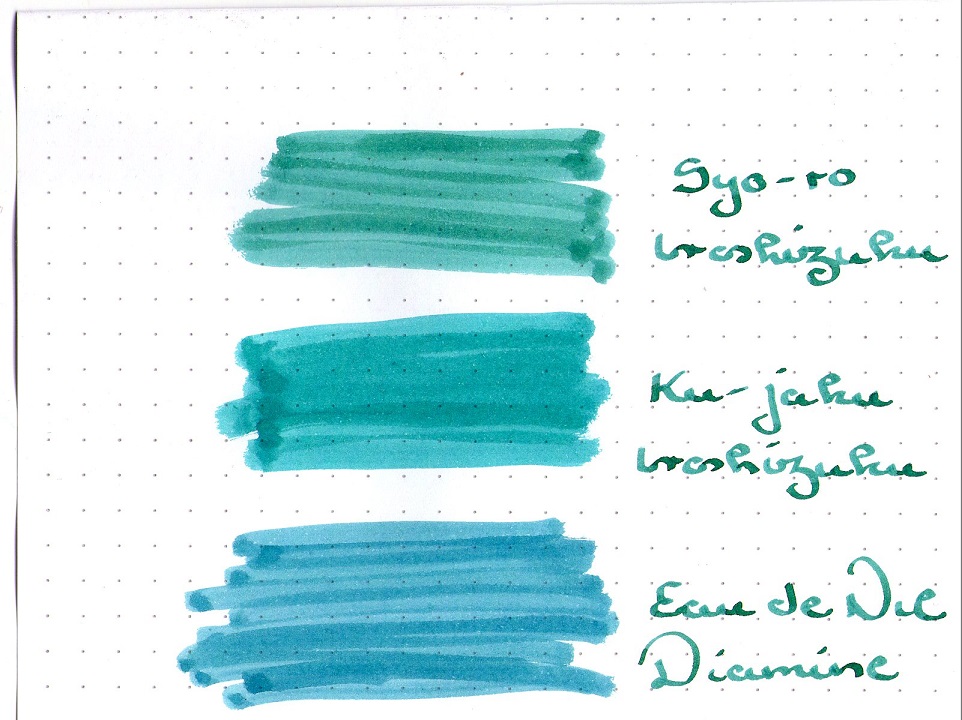 Syo-ro
iroshizuku
Ku-jaku
iroshizuku
Eau de Nil
Diamine